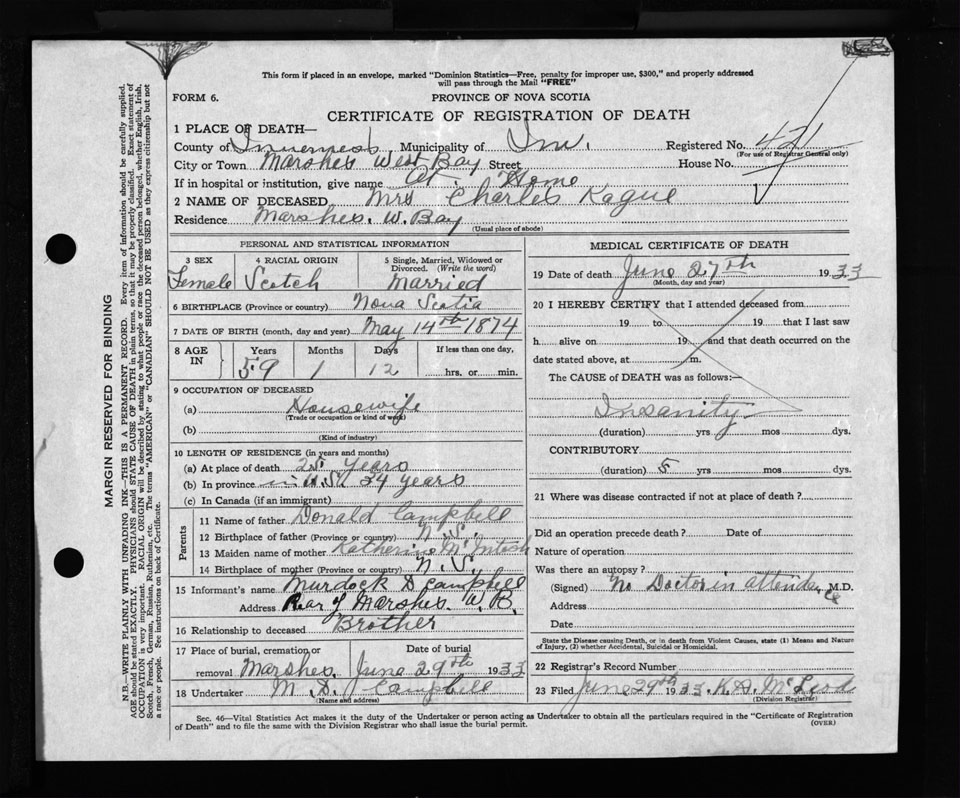 This form if placed in an envelope, marked "Dominion Statistics—Free, penalty for improper use, $300," and properly addressed
will pass through the Mail "FREE"
FORM 6.
PROVINCE OF NOVA SCOTIA
CERTIFICATE OF REGISTRATION OF DEATH
1 PLACE OF DEATH—
County of Inverness Municipality of Inv. Registered No. 421
(For use of Registrar General only)
City or Town Marshes West Bay Street House No.
If in hospital or institution, give name At Home
2 NAME OF DECEASED Mrs Charles Kague
Residence Marshes. W. Bay
(Usual place of abode)
PERSONAL AND STATISTICAL INFORMATION
3 SEX 4 RACIAL ORIGIN 5 Single, Married, Widowed or
Divorced. (Write the word)
Female Scotch Married
6 BIRTHPLACE (Province or country) Nova Scotia
7 DATE OF BIRTH (month, day and year) May 14th 1874
8 AGE IN Years Months Days If less than one day,
59 1 12 hrs. or min.
9 OCCUPATION OF DECEASED
(a) Housewife
(Trade or occupation or kind of work)
(b)
(Kind of industry)
10 LENGTH OF RESIDENCE (in years and months)
(a) At place of death 25 Years
(b) In province in U.S.A 34 years
(c) In Canada (if an immigrant)
Parents
11 Name of father Donald Campbell
12 Birthplace of father (Province or country) N.S.
13 Maiden name of mother Katherine McIntosh
14 Birthplace of mother (Province or country) N.S.
15 Informant's name Murdock D Campbell
Address Rear of Marshes. W. B.
16 Relationship to deceased Brother
17 Place of burial, cremation or removal Date of burial
Marshes. June 29th 1933
18 Undertaker M. D. Campbell
(Name and address)
MEDICAL CERTIFICATE OF DEATH
19 Date of death June 27th 1933
(Month, day and year)
20 I HEREBY CERTIFY that I attended deceased from
19 to 19 that I last saw
h alive on 19 and that death occurred on the
date stated above, at m.
The CAUSE of DEATH was as follows:—
Insanity
(duration) yrs mos dys.
CONTRIBUTORY
(duration) 5 yrs mos dys.
21 Where was disease contracted if not at place of death?
Did an operation precede death? Date of
Nature of operation
Was there an autopsy?
(Signed) No Doctor in attendance M.D.
Address
Date
State the Disease causing Death, or in death from Violent Causes, state (1) Means and Nature
of Injury, (2) whether Accidental, Suicidal or Homicidal.
22 Registrar's Record Number
23 Filed June 29th 1933. K.D. McLeod
(Division Registrar)
Sec. 46—Vital Statistics Act makes it the duty of the Undertaker or person acting as Undertaker to obtain all the particulars required in the "Certificate of Registration
of Death" and to file the same with the Division Registrar who shall issue the burial permit.
(OVER)
MARGIN RESERVED FOR BINDING
N.B.—WRITE PLAINLY WITH UNFADING INK—THIS IS A PERMANENT RECORD. Every item of information should be carefully supplied.
AGE should be stated EXACTLY. PHYSICIANS should STATE CAUSE OF DEATH in plain terms, so that it may be properly classified. Exact statement of
OCCUPATION is very important. RACIAL ORIGIN will be described by stating to what people or race the deceased person belonged, whether English, Irish,
Scotch, French, German, Russian, Ruthenian, etc. The terms "AMERICAN" or "CANADIAN" SHOULD NOT BE USED as they express citizenship but not
a race or people. See instructions on back of Certificate.